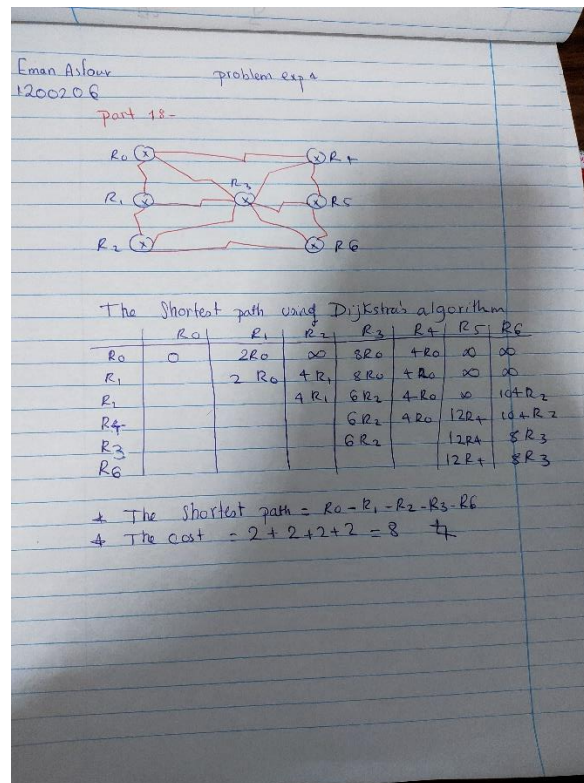 Eman Asfour problem exp 4
1200206
part 18-
R0 R4
R3
R1 R5
R2 R6
The Shortest path using Dijkstra's algorithm
R0 R1 R2 R3 R4 R5 R6
R0 0 2R0 ∞ 8R0 4R0 ∞ ∞
R1 2 R0 4 R1 8R0 4R0 ∞ ∞
R2 4 R1 6R2 4R0 ∞ 10+R2
R4 6R2 4R0 12R4 10+R2
R3 6R2 12R4 8R3
R6 12R4 8R3
* The Shortest path = R0 - R1 - R2 - R3 - R6
* The cost = 2 + 2 + 2 + 2 = 8 #